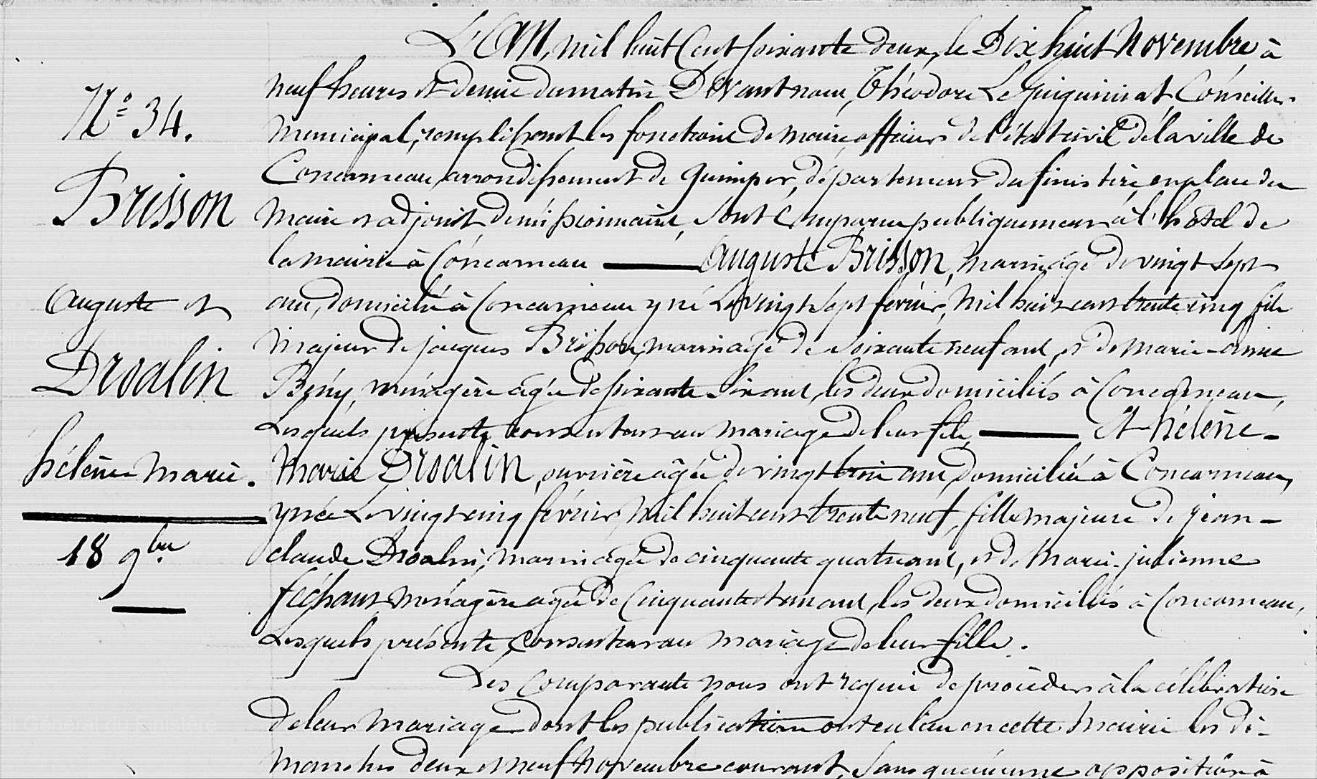 N° 34.
Brisson
Auguste et
Droalin
hélène marie.
18 9bre
L'an mil huit cent soixante deux, le Dix huit Novembre à
neuf heures et demie du matin Devant nous, Théodore Le Guiguiniat Conseiller
municipal, remplissant les fonctions de maire officier de l'état civil de la ville de
Concarneau, arrondissement de Quimper, département du finistère en place du
Maire et adjoint démissionnaire, sont comparu publiquement à l'hôtel de
la mairie à Concarneau Auguste Brisson, marin, âgé de vingt sept
ans, domicilié à Concarneau y né le vingt sept février, mil huit cent trente cinq fils
Majeur de jacques Brisson, marin âgé de soixante neuf ans, et de marie
ménagère âgée de soixante ans, les deux domiciliés à Concarneau,
Lesquels présents consentent au mariage de leur fils Et hélène-
marie Droalin, ouvrière âgée de vingt trois ans, domiciliée à Concarneau,
y née Le vingt cinq février, Mil huit cent trente neuf, fille majeure de jean-
claude Droalin, marin âgé de cinquante quatre ans, et de Marie-julienne
ménagère âgée de Cinquante ans, les deux domiciliés à Concarneau,
Lesquels présents, Consentent au mariage de leur fille.
Les Comparants nous ont requis de procéder à la célébration
De leur Mariage dont les publications ont eu lieu en cette Mairie les di-
manches deux et neuf Novembre courant, Sans qu'aucune opposition à